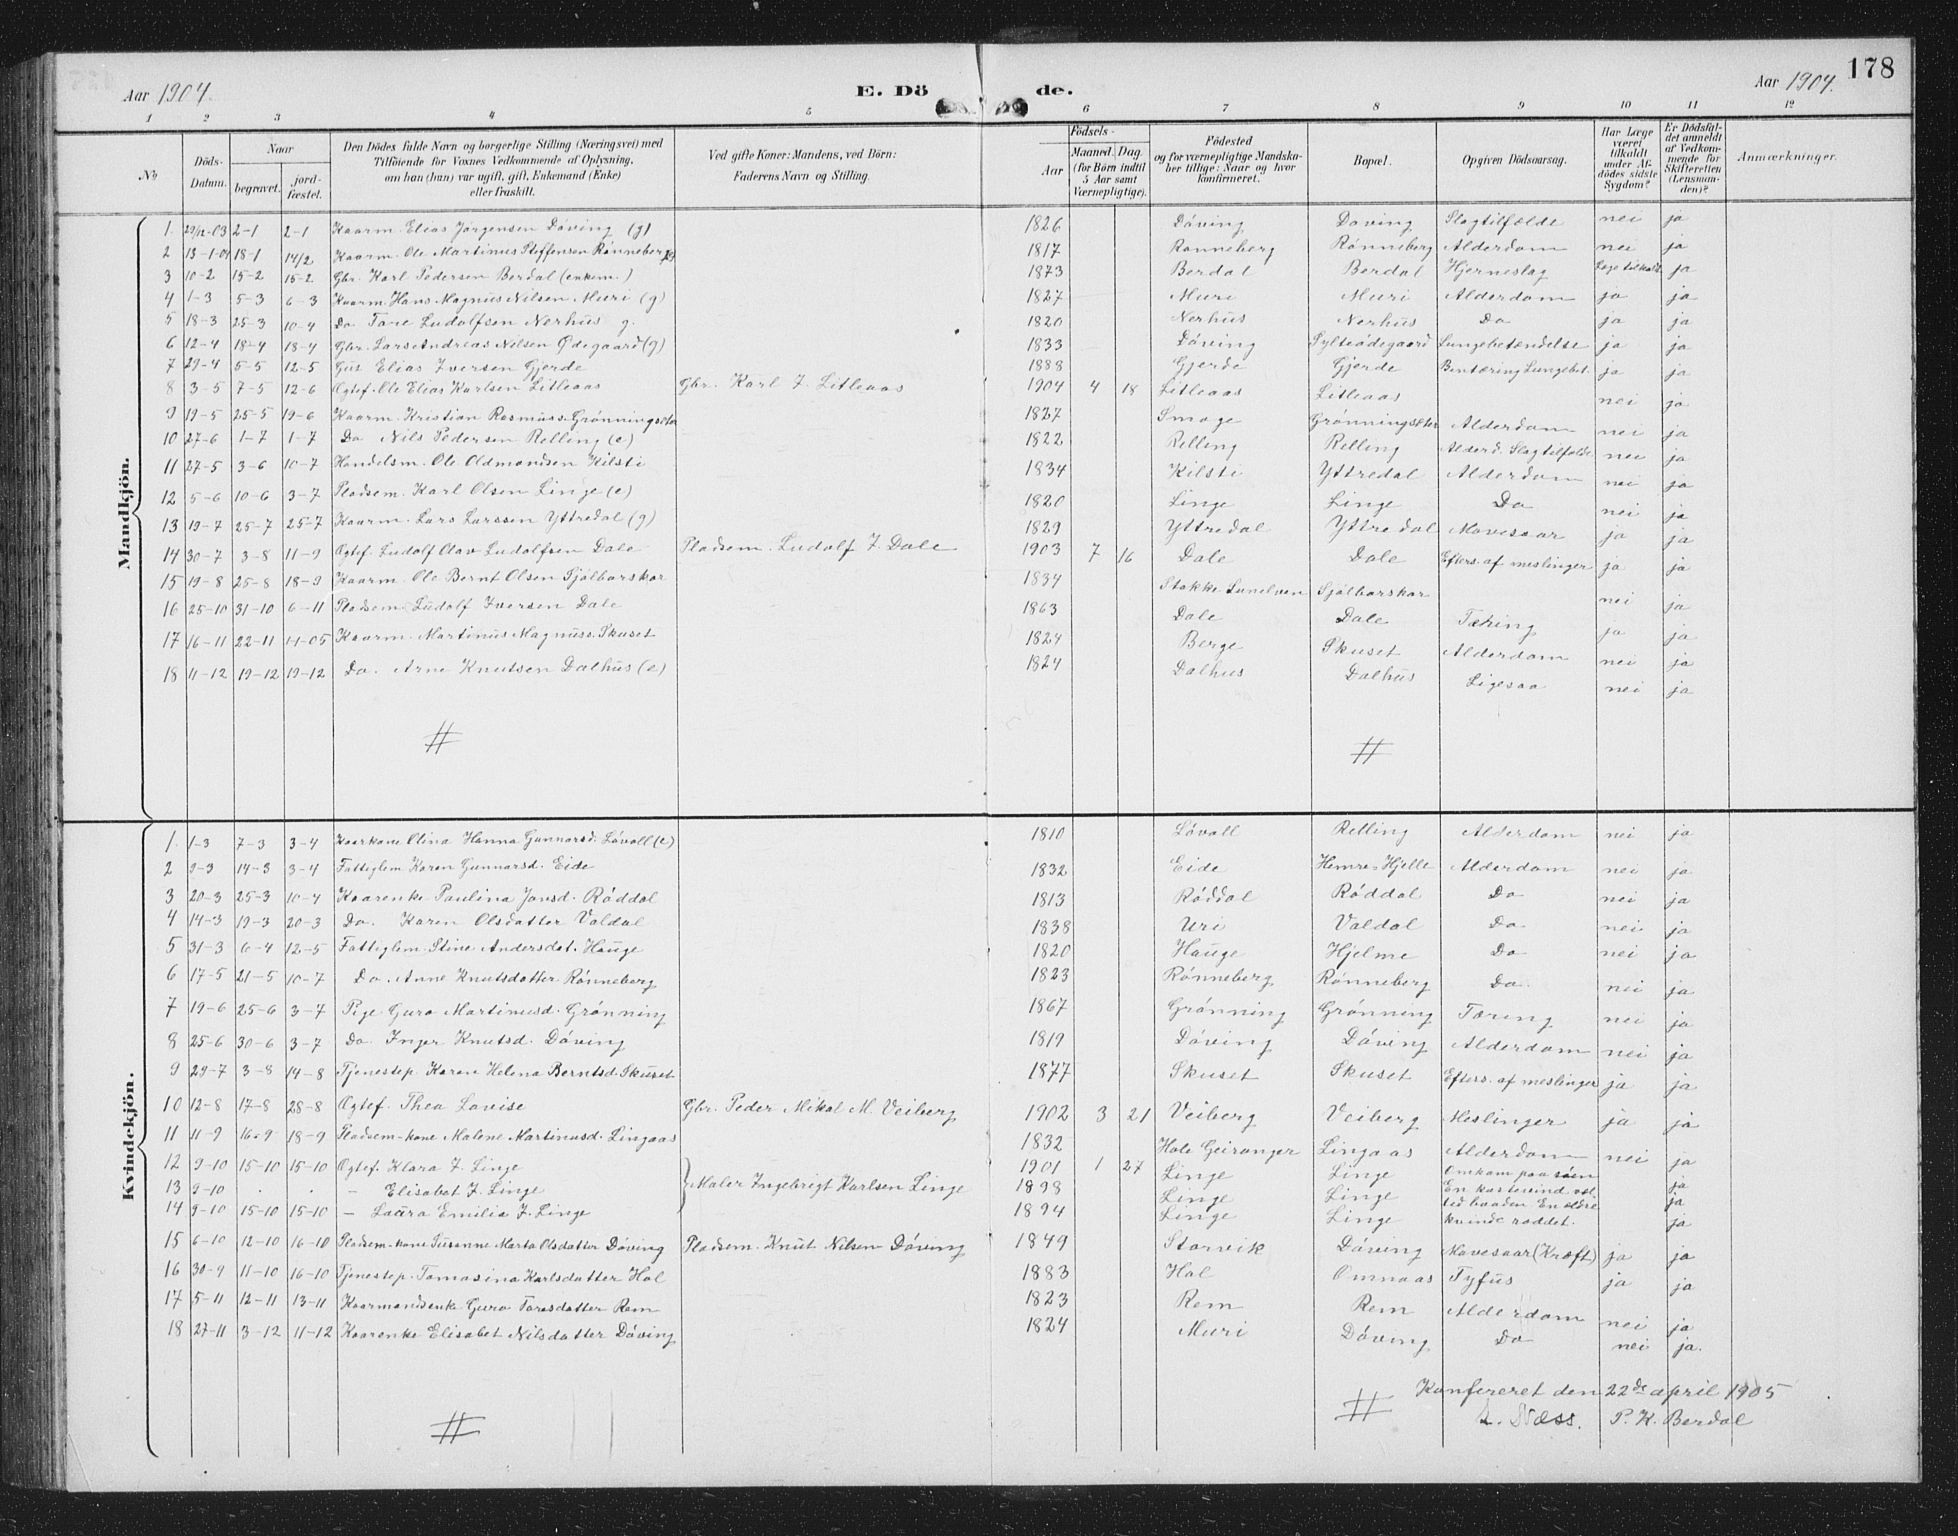 178
Aar 1904. E. Dö de. Aar 1904.
1 2 3 4 5 6 7 8 9 10 11 12
No
Döds-Datum.
Naar
begravet.
jord-fæstet.
Den Dödes fulde Navn og borgerlige Stilling (Næringsvei) med
Tilföiende for Voxnes Vedkommende af Oplysning,
om han (hun) var ugift, gift, Enkemand (Enke)
eller fraskilt.
Ved gifte Koner: Mandens, ved Börn:
Faderens Navn og Stilling.
Födsels-
Aar
Maaned. Dag.
(for Börn indtil
5 Aar samt
Værnepligtige).
Födested
og for værnepligtige Mandska-
ber tillige: Naar og hvor
konfirmeret.
Bopæl.
Opgiven Dödsaarsag.
Har Læge
været
tilkaldt
under Af-
dödes sidste
Sygdom?
Er Dödsfal-
det anmeldt
af Vedkom-
mende for
Skifteretten
(Lensman-
den)?
Anmærkninger.
Mandkjön.
1. 29/12-03 2-1 2-1 Kaarm. Elias Jørgensen Döving (g) 1826 Döving Döving Slagtilfælde nei ja
2 13-1-04 18-1 14/2 Kaarm. Ole Martinus Steffensen Rønneberg 1817 Rønneberg Rønneberg Alderdom nei ja
3 10-2 15-2 15-2 Gbr. Karl Pedersen Berdal (enkem.) 1873 Berdal Berdal Hjerneslag Læge tilkaldt ja
4 1-3 5-3 6-3 Kaarm. Hans Magnus Nilsen Muri (g) 1827 Muri Muri Alderdom ja ja
5 18-3 25-3 10-4 Do Tore Ludolfsen Nerhus g. 1820 Nerhus Nerhus Do ja ja
6 12-4 18-4 18-4 Gbr. Lars Andreas Nilsen Ødegaard (g) 1833 Döving Sylteödegaard Lungebetændelse ja ja
7 29-4 5-5 12-5 Gut Elias Iversen Gjerde 1888 Gjerde Gjerde Bentæring Lungebet. ja ja
8 3-5 7-5 12-6 Ægtef. Ole Elias Karlsen Litleaas Gbr. Karl J. Litleaas 1904 4 18 Litleaas Litleaas nei ja
9 19-5 25-5 19-6 Kaarm. Kristian Rasmuss. Grönningsæter 1827 Smoge Grönningsæter Alderdom nei ja
10 27-6 1-7 1-7 Do Nils Pedersen Relling (e) 1822 Relling Relling Alderd. Slagtilfælde nei ja
11 27-5 3-6 10-7 Handelsm. Ole Oldmondsen Kilsti 1834 Kilsti Yttredal Alderdom nei ja
12 5-6 10-6 3-7 Pladsem. Karl Olsen Linge (e) 1820 Linge Linge Do nei ja
13 19-7 25-7 25-7 Kaarm. Lars Larssen Yttredal (g) 1829 Yttredal Yttredal Mavesaar ja ja
14 30-7 3-8 11-9 Ægtef. Ludolf Olav Ludolfsen Dale Pladsem. Ludolf I. Dale 1903 7 16 Dale Dale Efters. af meslinger ja ja
15 19-8 25-8 18-9 Kaarm. Ole Bernt Olsen Sjölborskar 1834 Stokke Sunelven Sjölborskar nei ja
16 25-10 31-10 6-11 Pladsem. Ludolf Iversen Dale 1863 Dale Dale Tæring ja ja
17 16-11 22-11 1-1-05 Kaarm. Martinus Magnuss. Skuset 1824 Berge Skuset Alderdom nei ja
18 11-12 19-12 19-12 Do. Arne Knutsen Dalhus (e) 1824 Dalhus Dalhus Ligesaa nei ja
Kvindekjön.
1. 1-3 7-3 3-4 Kaarkone Olina Hanna Gunnarsd. Lövoll (e) 1810 Lövoll Relling Alderdom nei ja
2 9-3 14-3 3-4 Fattiglem Karen Gunnarsd. Eide 1832 Eide Hemre-Hjelle Alderdom nei ja
3 20-3 25-3 10-4 Kaarenke Paulina Jonsd. Röddal 1813 Röddal Röddal Do nei ja
4 14-3 19-3 20-3 Do. Karen Olsdatter Valdal 1838 Uri Valdal Do nei ja
5 31-3 6-4 12-5 Fattiglem. Stine Andersdat. Hauge 1820 Hauge Hjelme Do nei ja
6 17-5 21-5 10-7 Do. Anne Knutsdatter Rönneberg 1823 Rönneberg Rönneberg Do. nei ja
7 19-6 25-6 3-7 Pige Guro Martinusd. Grönning 1867 Grönning Grönning Tæring nei ja
8 25-6 30-6 3-7 Do. Inger Knutsd. Döving 1819 Döving Döving Alderdom nei ja
9 29-7 3-8 14-8 Tjenestep. Karen Helena Berntsd. Skuset 1877 Skuset Skuset Efters. af meslinger ja ja
10 12-8 17-8 28-8 Ægtef. Thea Lovise Gbr. Peder Mikal M. Veiberg 1902 3 21 Veiberg Veiberg Meslinger ja ja
11 11-9 16-9 18-9 Pladsem-kone Malene Martinusd. Lingaas 1832 Hole Geiranger Lingaas Alderdom nei ja
12 9-10 15-10 15-10 Ægtef. Klara I. Linge 1901 1 27 Linge Linge Omkom paa söen ja
13 9-10 . . - Elisabet I. Linge Maler Ingebrigt Karlsen Linge 1898 Linge Linge En kastevind vel ja
14 9-10 15-10 15-10 - Laura Emilia I. Linge 1894 Linge Linge ted baaden En eldre kvinde reddet. ja
15 6-10 12-10 16-10 Pladsem-kone Susanne Marta Olsdatter Döving Pladsem. Knut Nilsen Döving 1849 Storvik Döving Mavesaar (Kræft) ja ja
16 30-9 11-10 16-10 Tjenestep. Tomasina Karlsdatter Hol 1883 Hol Omnaas Tyfus ja ja
17 5-11 12-11 13-11 Kaarmandsenke Guro Toresdatter Rem 1823 Rem Rem Alderdom nei ja
18 27-11 3-12 11-12 Kaarenke Elisabet Nilsdatter Döving 1824 Muri Döving Do nei ja.
Konfereret den 22de april 1905
L. Næss. P. K. Berdal